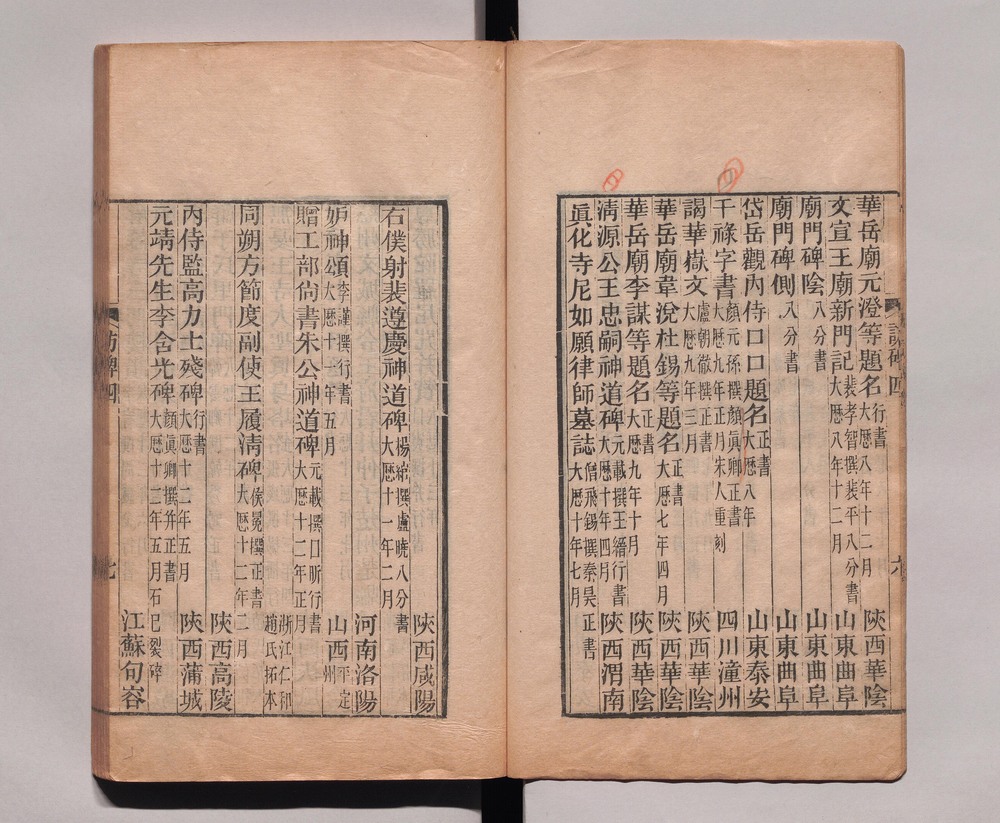 訪碑四
六
華岳廟元澄等題名 行書 大曆八年十二月 陝西華陰
文宣王廟新門記 裴孝智撰裴平八分書 大曆八年十二月 山東曲阜
廟門碑陰 八分書 山東曲阜
廟門碑側 八分書 山東曲阜
岱岳觀內侍口口題名 正書 大曆八年 山東泰安
干祿字書 顏元孫撰顏眞卿正書 大曆九年正月宋人重刻 四川潼州
謁華嶽文 盧朝徹撰正書 大曆九年三月 陝西華陰
華岳廟韋涗杜錫等題名 正書 大曆七年四月 陝西華陰
華岳廟李謀等題名 正書 大曆九年十月 陝西華陰
淸源公王忠嗣神道碑 元載撰王縉行書 大曆十年四月 陝西渭南
眞化寺尼如願律師墓誌 僧飛錫撰秦昊正書 大曆十年七月
右僕射裴遵慶神道碑 楊綰撰盧曉八分書 大曆十一年二月 陝西咸陽
河南洛陽
妒神頌 李諲撰行書 大曆十一年五月 山西平定州
贈工部尙書朱公神道碑 元載撰口昕行書 大曆十二年正月
浙江仁和趙氏拓本
同朔方節度副使王履淸碑 侯冕撰正書 大曆十二年二月
陝西高陵
內侍監高力士殘碑 行書 大曆十二年五月 陝西蒲城
元靖先生李含光碑 顏眞卿撰幷正書 大曆十二年五月石已裂碎 江蘇句容
訪碑四
七